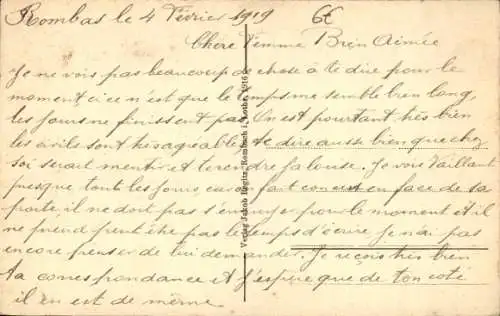 Rombas le 4 Février 1919
6€
Chère Femme Bien Aimée
Je ne vois pas beaucoup de chose à te dire pour le
moment ici ce n'est que le temps me semble bien long,
les jours ne finissent pas. On est pourtant très bien
les civils sont très agréables te dire aussi bien que chez
soi serait mentir et te rendre jalouse. Je vois Vaillant
presque tout les jours car on fait en face de sa
porte il ne doit pas s'ennuyer pour le moment et il
ne prend peut être pas le temps d'écrire je n'ai pas
encore penser de lui demander. Je reçois très bien
ta correspondance et j'espère que de ton coté
il en est de même.
Verlag Jakob Regitz, Rombach i. Lothr. 1916